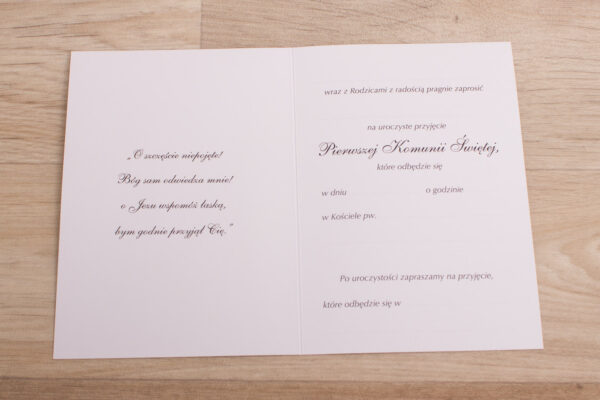 „O szczęście niepojęte!
Bóg sam odwiedza mnie!
o Jezu wspomóż łaską,
bym godnie przyjął Cię.”
wraz z Rodzicami z radością pragnie zaprosić
na uroczyste przyjęcie
Pierwszej Komunii Świętej,
które odbędzie się
w dniu o godzinie
w Kościele pw.
Po uroczystości zapraszamy na przyjęcie,
które odbędzie się w